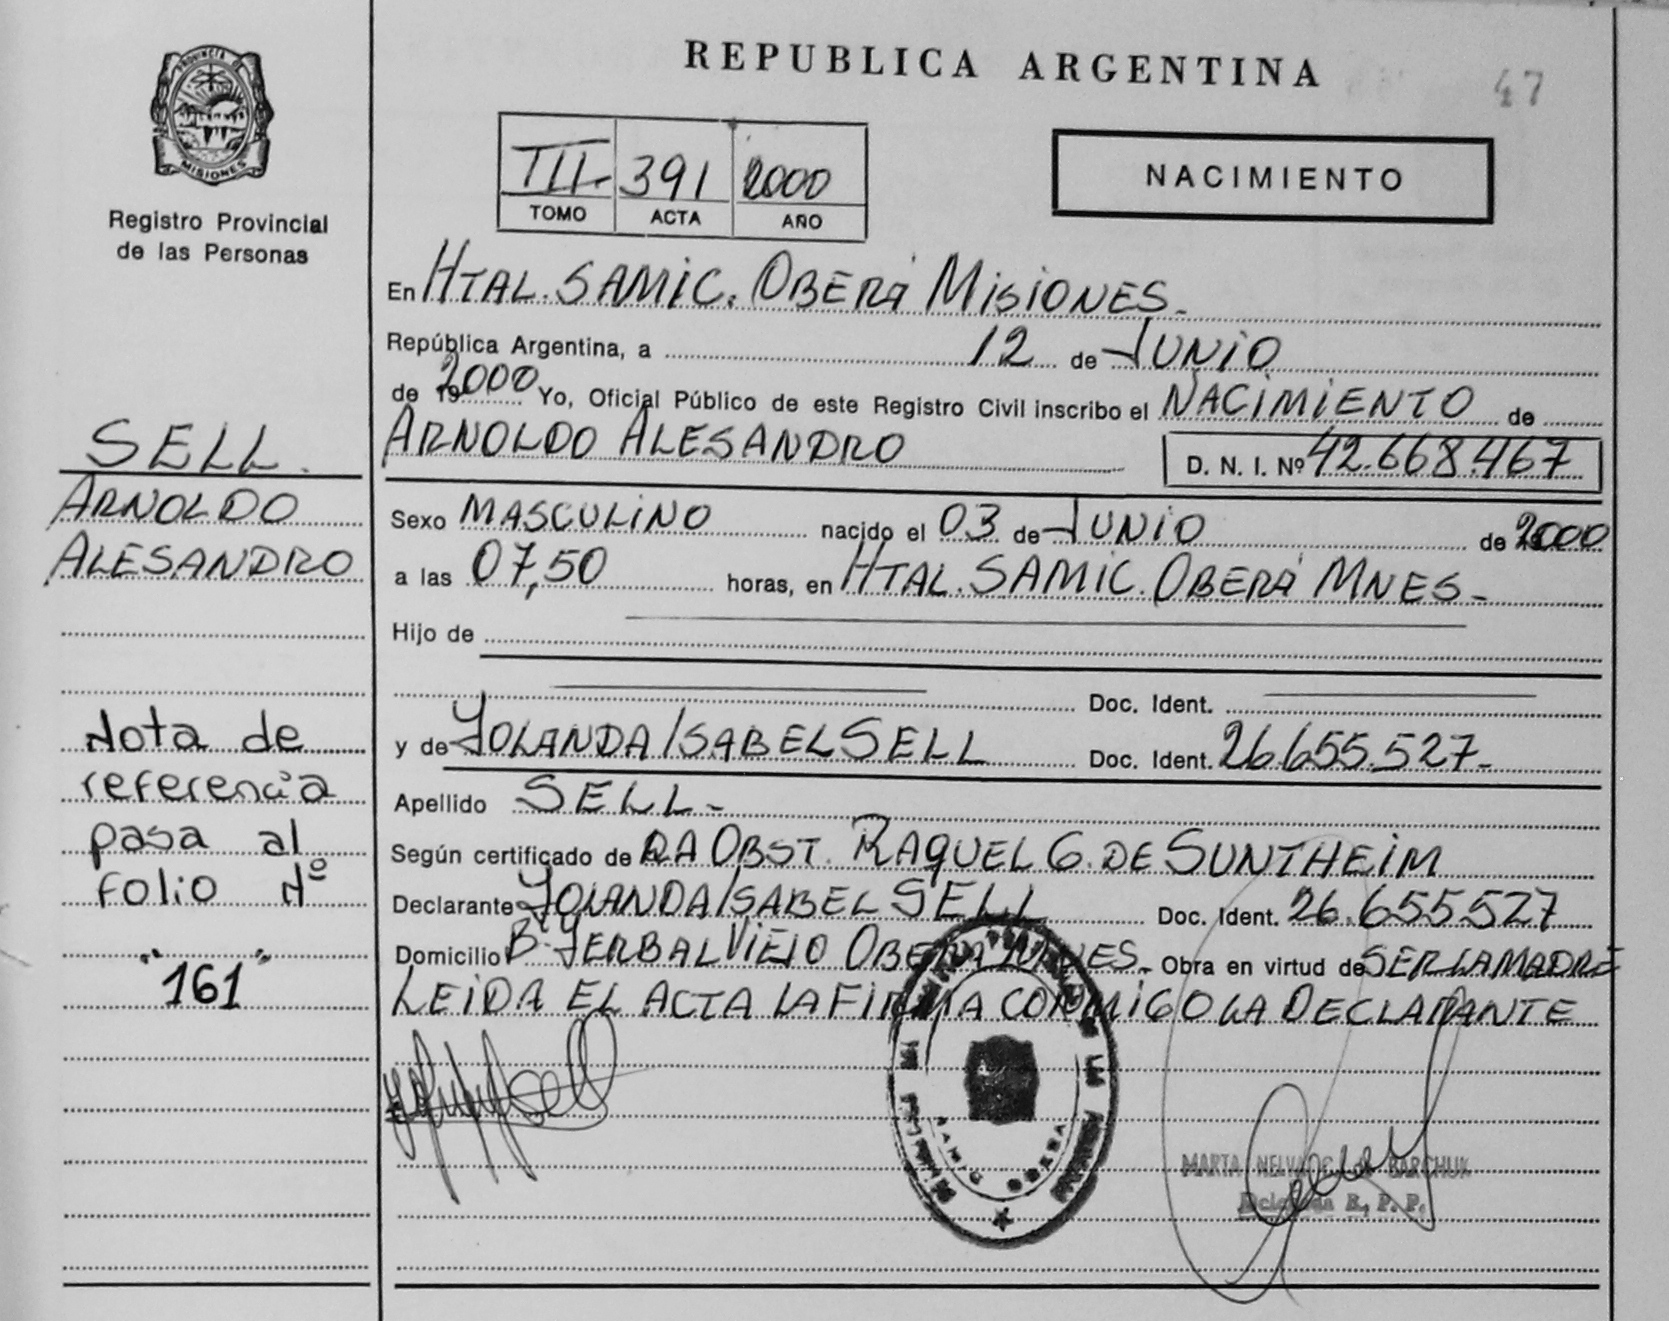 REPUBLICA ARGENTINA
47
PROVINCIA DE
MISIONES
Registro Provincial
de las Personas
III- 391 2000
TOMO ACTA AÑO
NACIMIENTO
En HTAL. SAMIC. OBERÁ MISIONES-
República Argentina, a 12 de JUNIO
de 2000 Yo, Oficial Público de este Registro Civil inscribo el NACIMIENTO de
ARNOLDO ALESANDRO D. N. I. Nº 42.668.467
Sexo MASCULINO nacido el 03 de JUNIO de 2000
a las 07,50 horas, en HTAL. SAMIC. OBERÁ MNES-
Hijo de
Doc. Ident.
y de YOLANDA ISABEL SELL Doc. Ident. 26.655.527-
Apellido SELL-
Según certificado de OBST. RAQUEL G. DE SUNTHEIM
Declarante YOLANDA ISABEL SELL Doc. Ident. 26.655527
Domicilio Bº YERBAL VIEJO OBERÁ MNES- Obra en virtud de SER LA MADRE
LEIDA EL ACTA LA FIRMA CONMIGO LA DECLARANTE
SELL.
ARNOLDO
ALESANDRO
Nota de
referencia
pasa al
folio Nº
"161"
SAMIC OBERA
MARTA BARCHUK
Delegada R. P. P.